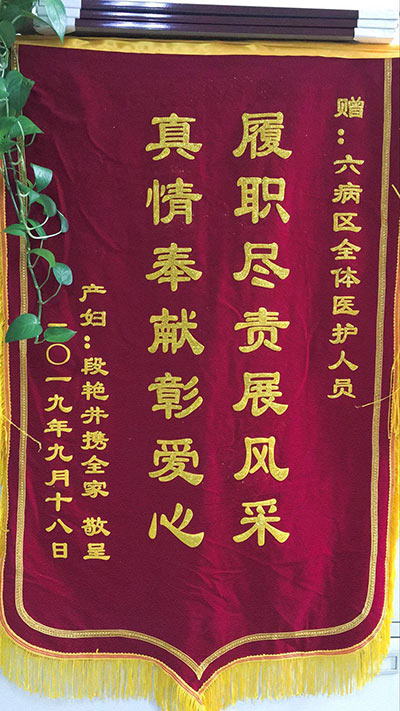 赠：六病区全体医护人员
履职尽责展风采
真情奉献彰爱心
产妇：段艳井携全家 敬呈
二〇一九年九月十八日